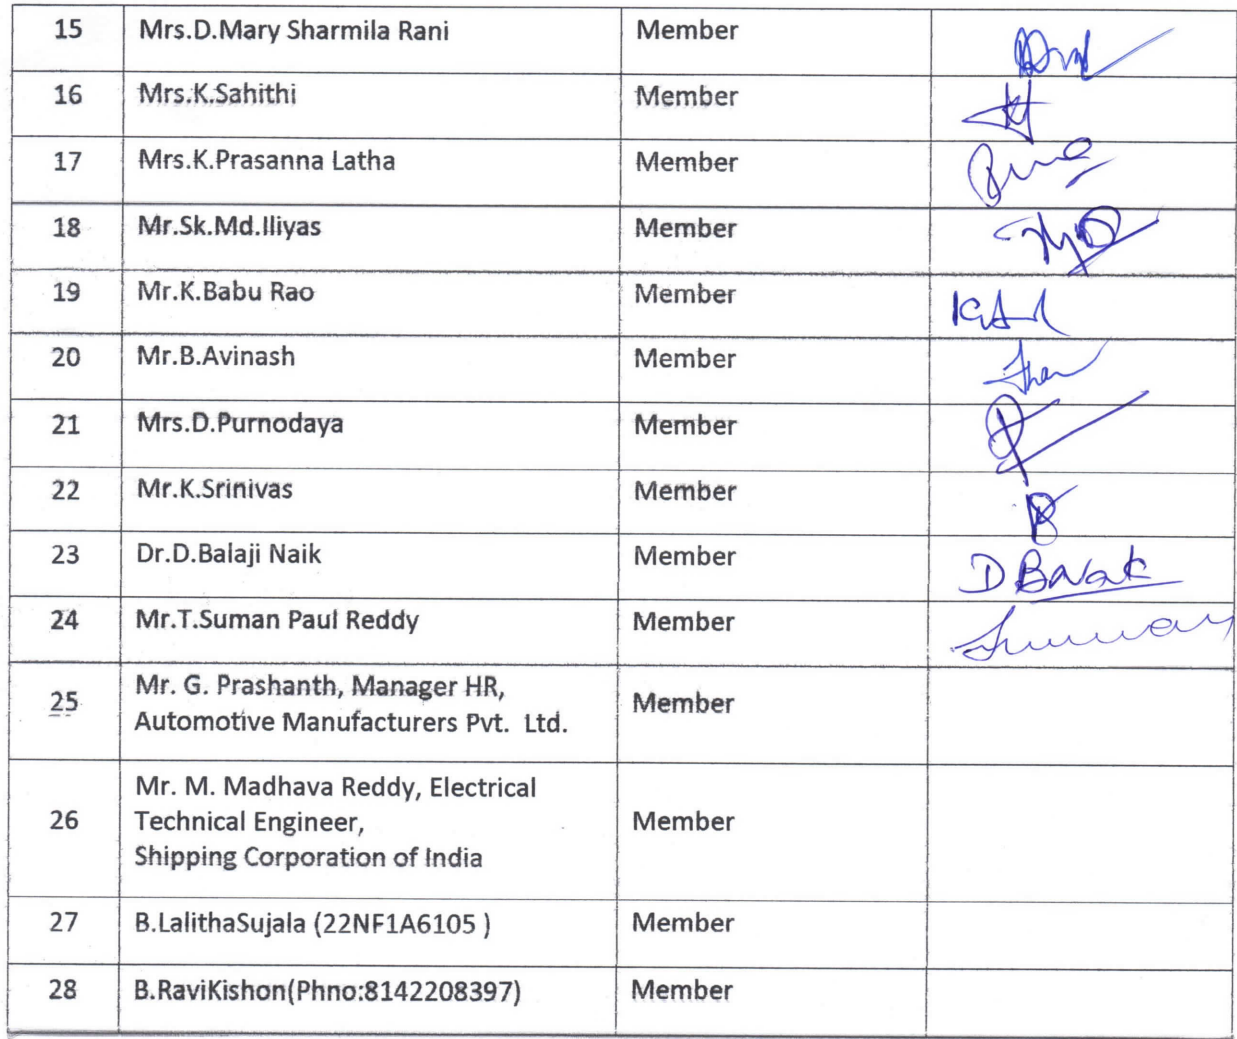 15 Mrs.D.Mary Sharmila Rani Member
16 Mrs.K.Sahithi Member
17 Mrs.K.Prasanna Latha Member
18 Mr.Sk.Md.Iliyas Member
19 Mr.K.Babu Rao Member
20 Mr.B.Avinash Member
21 Mrs.D.Purnodaya Member
22 Mr.K.Srinivas Member
23 Dr.D.Balaji Naik Member
24 Mr.T.Suman Paul Reddy Member
25 Mr. G. Prashanth, Manager HR, Member
Automotive Manufacturers Pvt. Ltd.
Mr. M. Madhava Reddy, Electrical
26 Technical Engineer, Member
Shipping Corporation of India
27 B.LalithaSujala (22NF1A6105 ) Member
28 B.RaviKishon(Phno:8142208397) Member